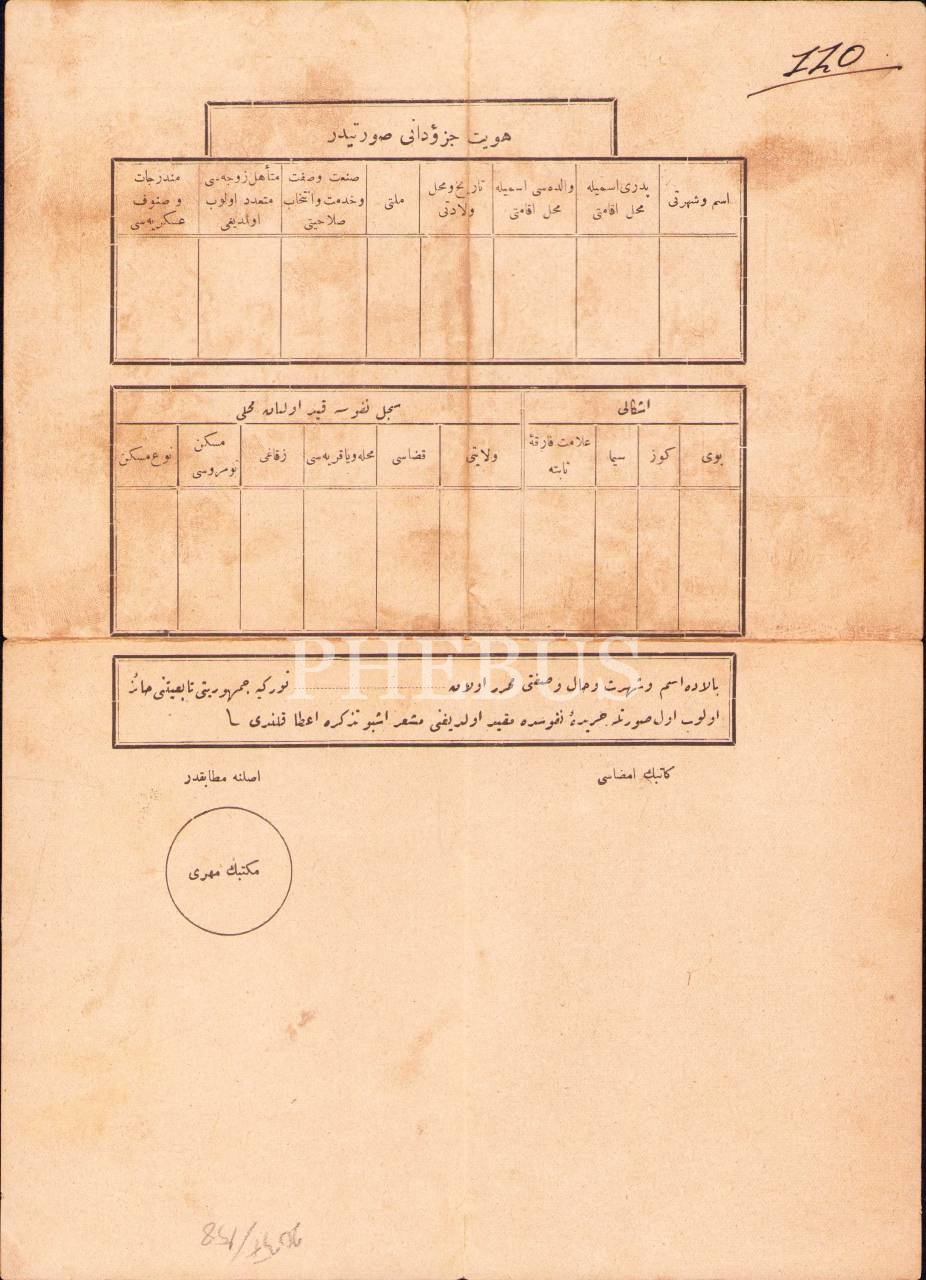 110
هويت جزؤدانی صورتيدر
اسم وشهرتی
پدری اسميله
محل اقامتی
والده‌سی اسميله
محل اقامتی
تاريخ ومحل
ولادتی
ملتی
صنعت وصفت
وخدمت وانتخاب
صلاحيتی
متأهل زوجه‌سی
متعدد اولوب
اولديغی
مندرجات
و صنوف
عسكريه‌سی
اشكالی
سجل نفوسه قيد اولنان محلی
بوی
كوز
سيما
علامت فارقهٔ
ثابته
ولايتی
قضاسی
محله وياقريه‌سی
زقاغی
مسكن
نومروسی
نوع مسكن
PHEBUS
بالاده اسم وشهرت وحال وصفتی محرر اولان توركيه جمهوريتی تابعيتنی حائز
اولوب اول صورتله جريدهٔ نفوسده مقيد اولديغنی مشعر اشبو تذكره اعطا قلندی
كاتبك امضاسی
اصلنه مطابقدر
مكتبك مهری